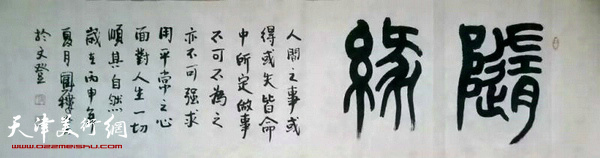 隨緣
人間之事或
得或失皆命
中所定做事
不可不為之
亦不可强求
用平常之心
面對人生一切
順其自然
歲在丙申年
夏月
於文登
天津美術網
www.022meishu.com